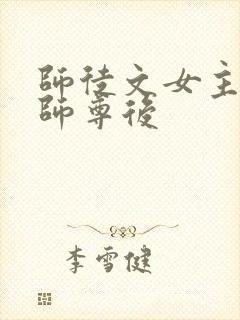 師徒文女主
師尊後
李雪健